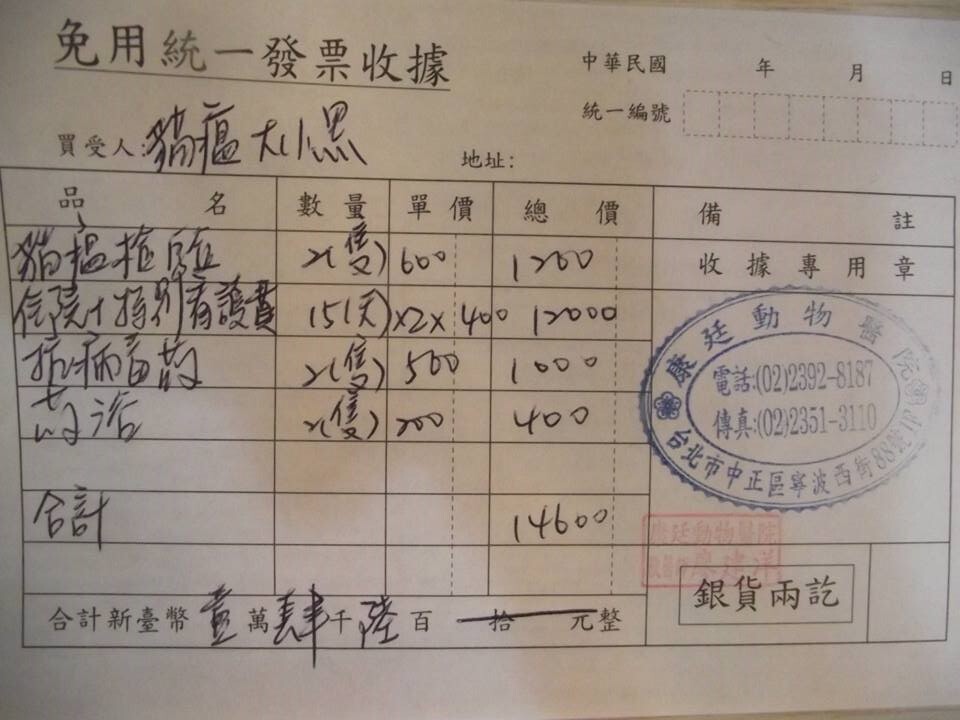 免用統一發票收據
中華民國 年 月 日
統一編號
買受人:貓瘟 大小黑
地址:
品名 數量 單價 總價 備註
貓瘟檢驗 2(隻) 600 1200
收據專用章
住院+特別看護費 15(天)×2× 400 12000
抗病毒 2(隻) 500 1000
藥浴 2(隻) 200 400
合計 14600
合計新臺幣 壹 萬 肆 千 陸 百 拾 元整
康廷動物醫院
電話:(02)2392-8187
傳真:(02)2351-3110
台北市中正區寧波西街88號
康廷動物醫院
廖建洋
銀貨兩訖